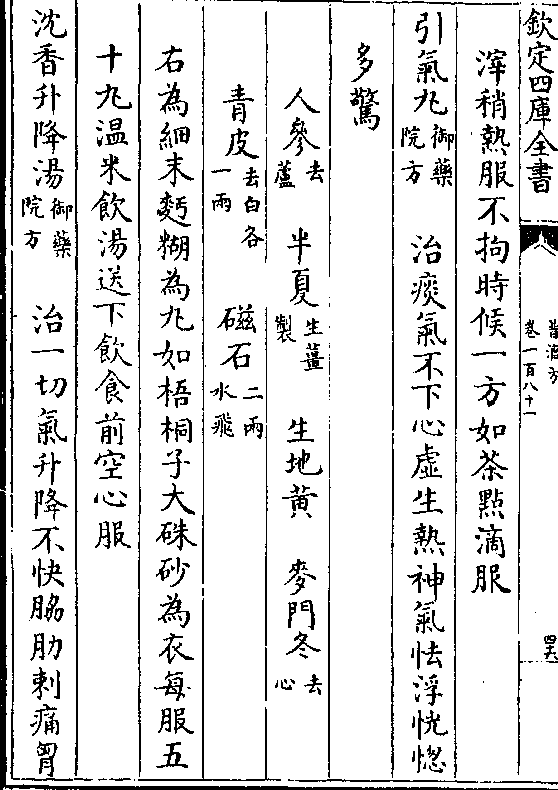 欽定四庫全書
普濟方
卷一百八十一
四六
滓稍熱服不拘時候一方如茶點滴服
引氣丸御藥院方 治痰氣不下心虛生熱神氣怯浮恍惚
多驚
人參去蘆 半夏生薑製 生地黃 麥門冬去心
青皮去白各一兩 磁石二兩水飛
右為細末麪糊為丸如梧桐子大硃砂為衣每服五
十丸温米飲湯送下飲食前空心服
沈香升降湯御藥院方 治一切氣升降不快脇肋刺痛胷